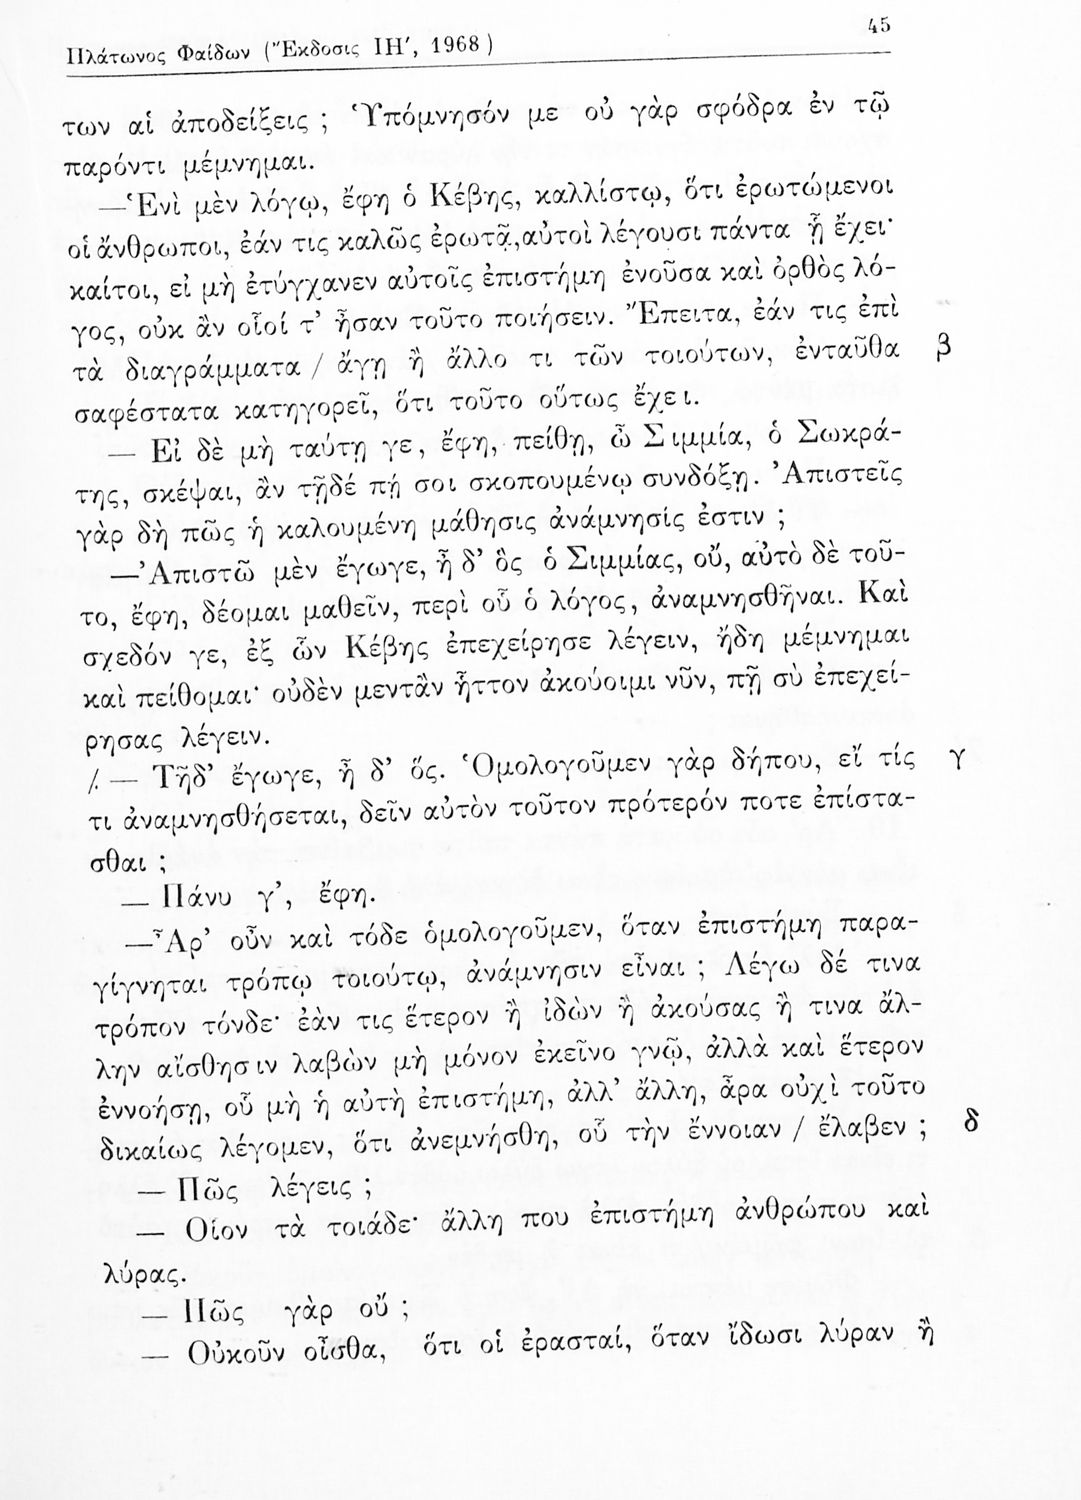 Πλάτωνος Φαίδων (Ἔκδοσις ΙΗ', 1968) 45
των αἱ ἀποδείξεις ; Ὑπόμνησόν με οὐ γὰρ σφόδρα ἐν τῷ
παρόντι μέμνημαι.
—Ἑνὶ μὲν λόγῳ, ἔφη ὁ Κέβης, καλλίστῳ, ὅτι ἐρωτώμενοι
οἱ ἄνθρωποι, ἐάν τις καλῶς ἐρωτᾷ,αὐτοὶ λέγουσι πάντα ᾗ ἔχει·
καίτοι, εἰ μὴ ἐτύγχανεν αὐτοῖς ἐπιστήμη ἐνοῦσα καὶ ὀρθὸς λό-
γος, οὐκ ἂν οἷοί τ' ἦσαν τοῦτο ποιήσειν. Ἔπειτα, ἐάν τις ἐπὶ
τὰ διαγράμματα / ἄγῃ ἢ ἄλλο τι τῶν τοιούτων, ἐνταῦθα β
σαφέστατα κατηγορεῖ, ὅτι τοῦτο οὕτως ἔχει.
— Εἰ δὲ μὴ ταύτῃ γε, ἔφη, πείθῃ, ὦ Σιμμία, ὁ Σωκρά-
της, σκέψαι, ἂν τῇδέ πῄ σοι σκοπουμένῳ συνδόξῃ. Ἀπιστεῖς
γὰρ δὴ πῶς ἡ καλουμένη μάθησις ἀνάμνησίς ἐστιν ;
—Ἀπιστῶ μὲν ἔγωγε, ἦ δ' ὃς ὁ Σιμμίας, οὔ, αὐτὸ δὲ τοῦ-
το, ἔφη, δέομαι μαθεῖν, περὶ οὗ ὁ λόγος, ἀναμνησθῆναι. Καὶ
σχεδόν γε, ἐξ ὧν Κέβης ἐπεχείρησε λέγειν, ἤδη μέμνημαι
καὶ πείθομαι· οὐδὲν μεντἂν ἧττον ἀκούοιμι νῦν, πῇ σὺ ἐπεχεί-
ρησας λέγειν.
/. — Τῇδ' ἔγωγε, ἦ δ' ὅς. Ὁμολογοῦμεν γὰρ δήπου, εἴ τίς γ
τι ἀναμνησθήσεται, δεῖν αὐτὸν τοῦτον πρότερόν ποτε ἐπίστα-
σθαι ;
— Πάνυ γ', ἔφη.
—Ἆρ' οὖν καὶ τόδε ὁμολογοῦμεν, ὅταν ἐπιστήμη παρα-
γίγνηται τρόπῳ τοιούτῳ, ἀνάμνησιν εἶναι ; Λέγω δέ τινα
τρόπον τόνδε· ἐὰν τις ἕτερον ἢ ἰδὼν ἢ ἀκούσας ἤ τινα ἄλ-
λην αἴσθησιν λαβὼν μὴ μόνον ἐκεῖνο γνῷ, ἀλλὰ καὶ ἕτερον
ἐννοήσῃ, οὗ μὴ ἡ αὐτὴ ἐπιστήμη, ἀλλ' ἄλλη, ἆρα οὐχὶ τοῦτο
δικαίως λέγομεν, ὅτι ἀνεμνήσθη, οὗ τὴν ἔννοιαν / ἔλαβεν ; δ
— Πῶς λέγεις ;
— Οἷον τὰ τοιάδε· ἄλλη που ἐπιστήμη ἀνθρώπου καὶ
λύρας.
— Πῶς γὰρ οὔ ;
— Οὐκοῦν οἶσθα, ὅτι οἱ ἐρασταί, ὅταν ἴδωσι λύραν ἢ